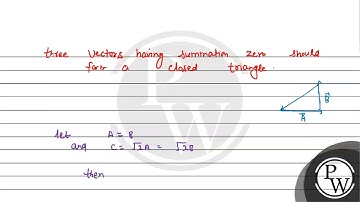 three vectors having summation zero should
form a closed triangle.
B
A
let A = B
and C = √2A = √2B
then
PW